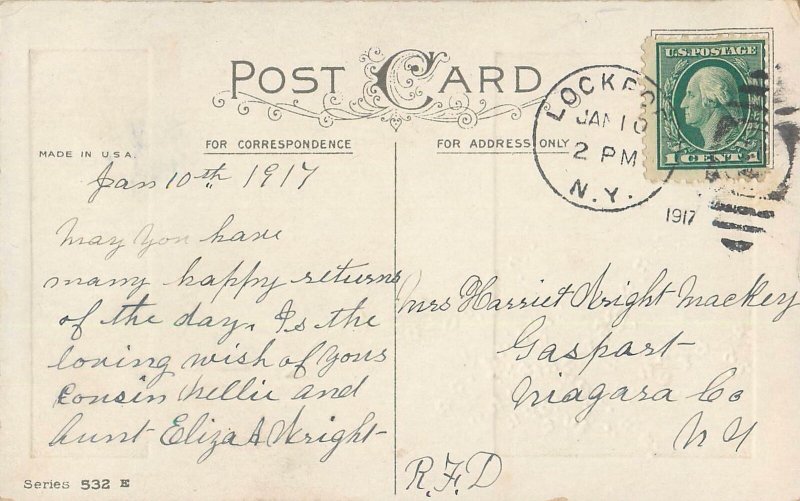 POST CARD
FOR CORRESPONDENCE
FOR ADDRESS ONLY
MADE IN U.S.A.
U.S. POSTAGE
1 CENT 1
LOCKPORT
JAN 10
2 PM
N.Y.
1917
Jan 10th 1917
May you have
many happy returns
of the day. Is the
loving wish of yous
Cousin Nellie and
Aunt Eliza A Wright
Mrs Harriet Wright Mackey
Gasport
Niagara Co
N Y
R.F.D
Series 532 E